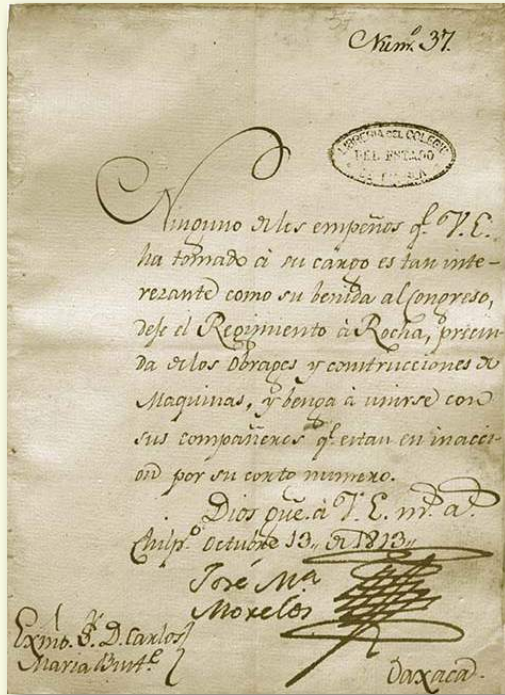 Num.º 37.
LIBRERIA DEL COLEGIO
DEL ESTADO
Ninguno de los empeños q.e V.E.
ha tomado à su cargo es tan inte-
rezante como su benida al Congreso,
dese el Regimiento à Rocha, precin-
da de los Obrages y construcciones de
Maquinas, y benga à unirse con
sus compañeros q.e estan en inacci-
on por su corto numero.
Dios gue. à V.E. m.s a.s
Chilp.o Octubre 13,, de 1813,,
José M.a
Morelos
Exmo. S.r D. Carlos
Maria Bust.e
Oaxaca.